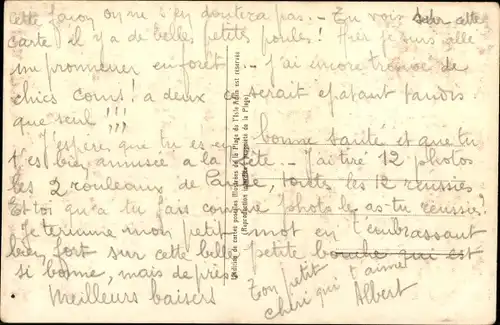 cette façon on ne s'en doutera pas. - Tu vois sur cette
carte, il y a de belles petites poules! Hier je suis allé
me promener en forêt... j'ai encore trouvé de
chics coins! a deux ça serait épatant tandis
que seul!!!
J'espère que tu es en bonne santé et que tu
t'es bien amusée a la fête. - J'ai tiré 12 photos
les 2 rouleaux de toutes les 12 réussies
Et toi qu'a tu fais comme photo les as-tu réussies?
Je termine mon petit mot en t'embrassant
bien fort sur cette belle petite bouche qui est
si bonne, mais de près
Meilleurs baisers!
Ton petit
chéri qui t'aime
Albert
de cartes postales illustrées de la Plage de l'Isle Adam est réservée
(Reproduction de la Plage)